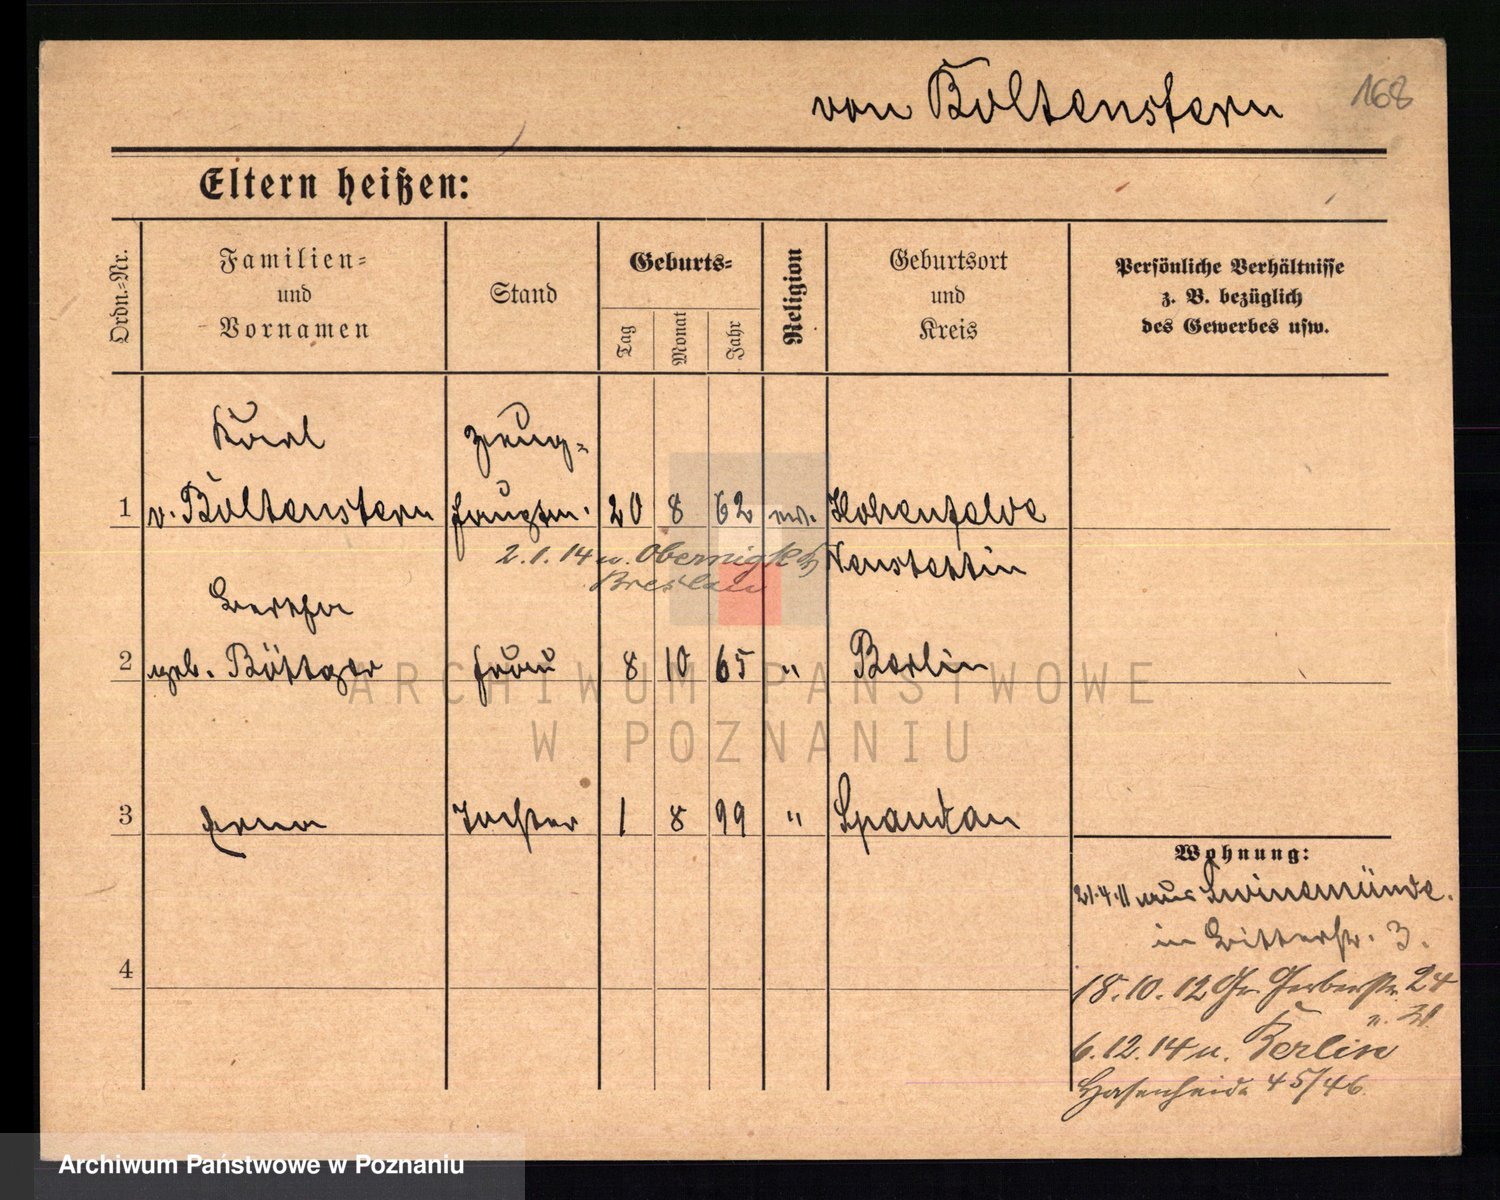 von Boltenstern 168
Eltern heißen:
Ordn.=Nr.
Familien=
und
Vornamen
Stand
Geburts=
Tag
Monat
Jahr
Religion
Geburtsort
und
Kreis
Persönliche Verhältnisse
z. B. bezüglich
des Gewerbes usw.
Karl Zeug=
1 v. Boltenstern hauptm. 20 8 62 ev. Hohenfelde
2.1.14 n. Obernigk Neustettin
Breslau
Bertha
2 geb. Böttger Frau 8 10 65 " Berlin
ARCHIWUM PAŃSTWOWE
W POZNANIU
3 Erna Tochter 1 8 99 " Spandau
Wohnung:
21.4.11 aus Swinemünde.
in Ritterstr. 3.
4
18.10.12 Gr. Gerberstr. 24
6.12.14 n. Berlin
Hasenheide 45/46
Archiwum Państwowe w Poznaniu